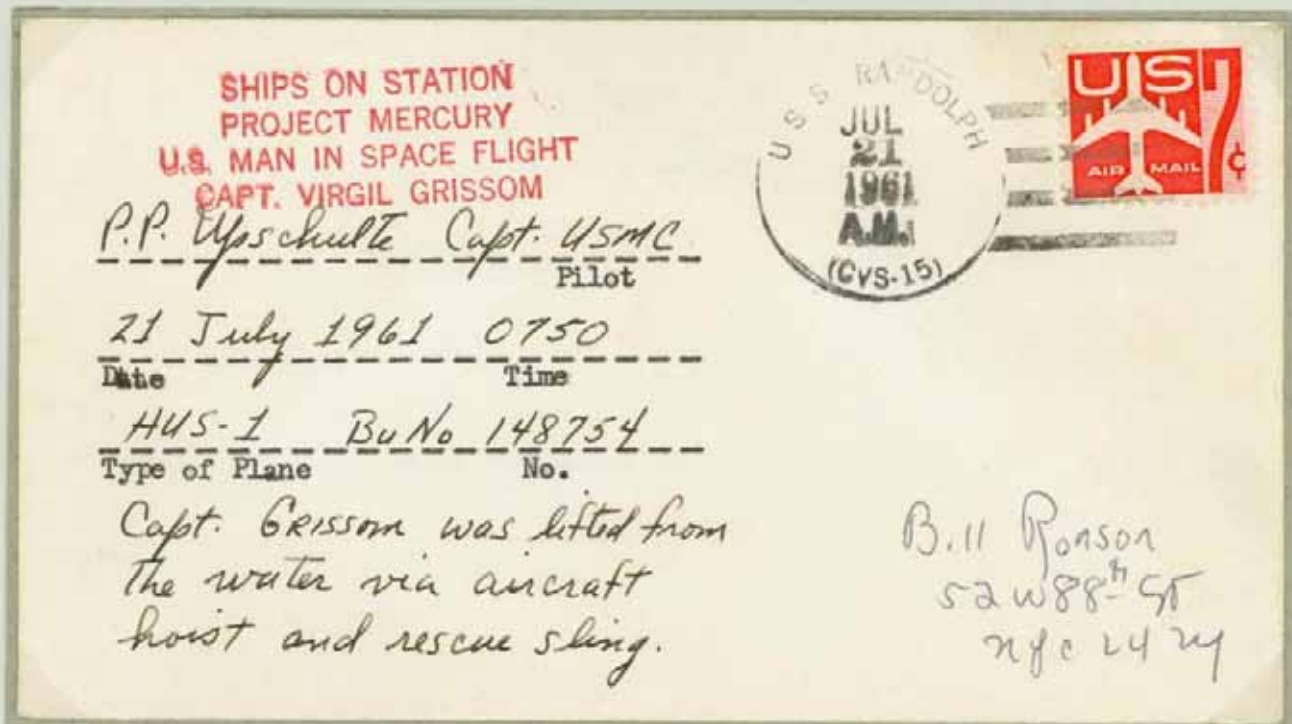 SHIPS ON STATION
PROJECT MERCURY
U.S. MAN IN SPACE FLIGHT
CAPT. VIRGIL GRISSOM
P.P. Upschulte Capt. USMC
Pilot
21 July 1961 0750
Date Time
HUS-1 BuNo 148754
Type of Plane No.
Capt. GRISSOM was lifted from
the water via aircraft
hoist and rescue sling.
U S S RANDOLPH
JUL
21
1961
A.M.
(CVS-15)
US 7¢
AIR MAIL
Bill Ronson
52 W 88th St
nyc 24 ny